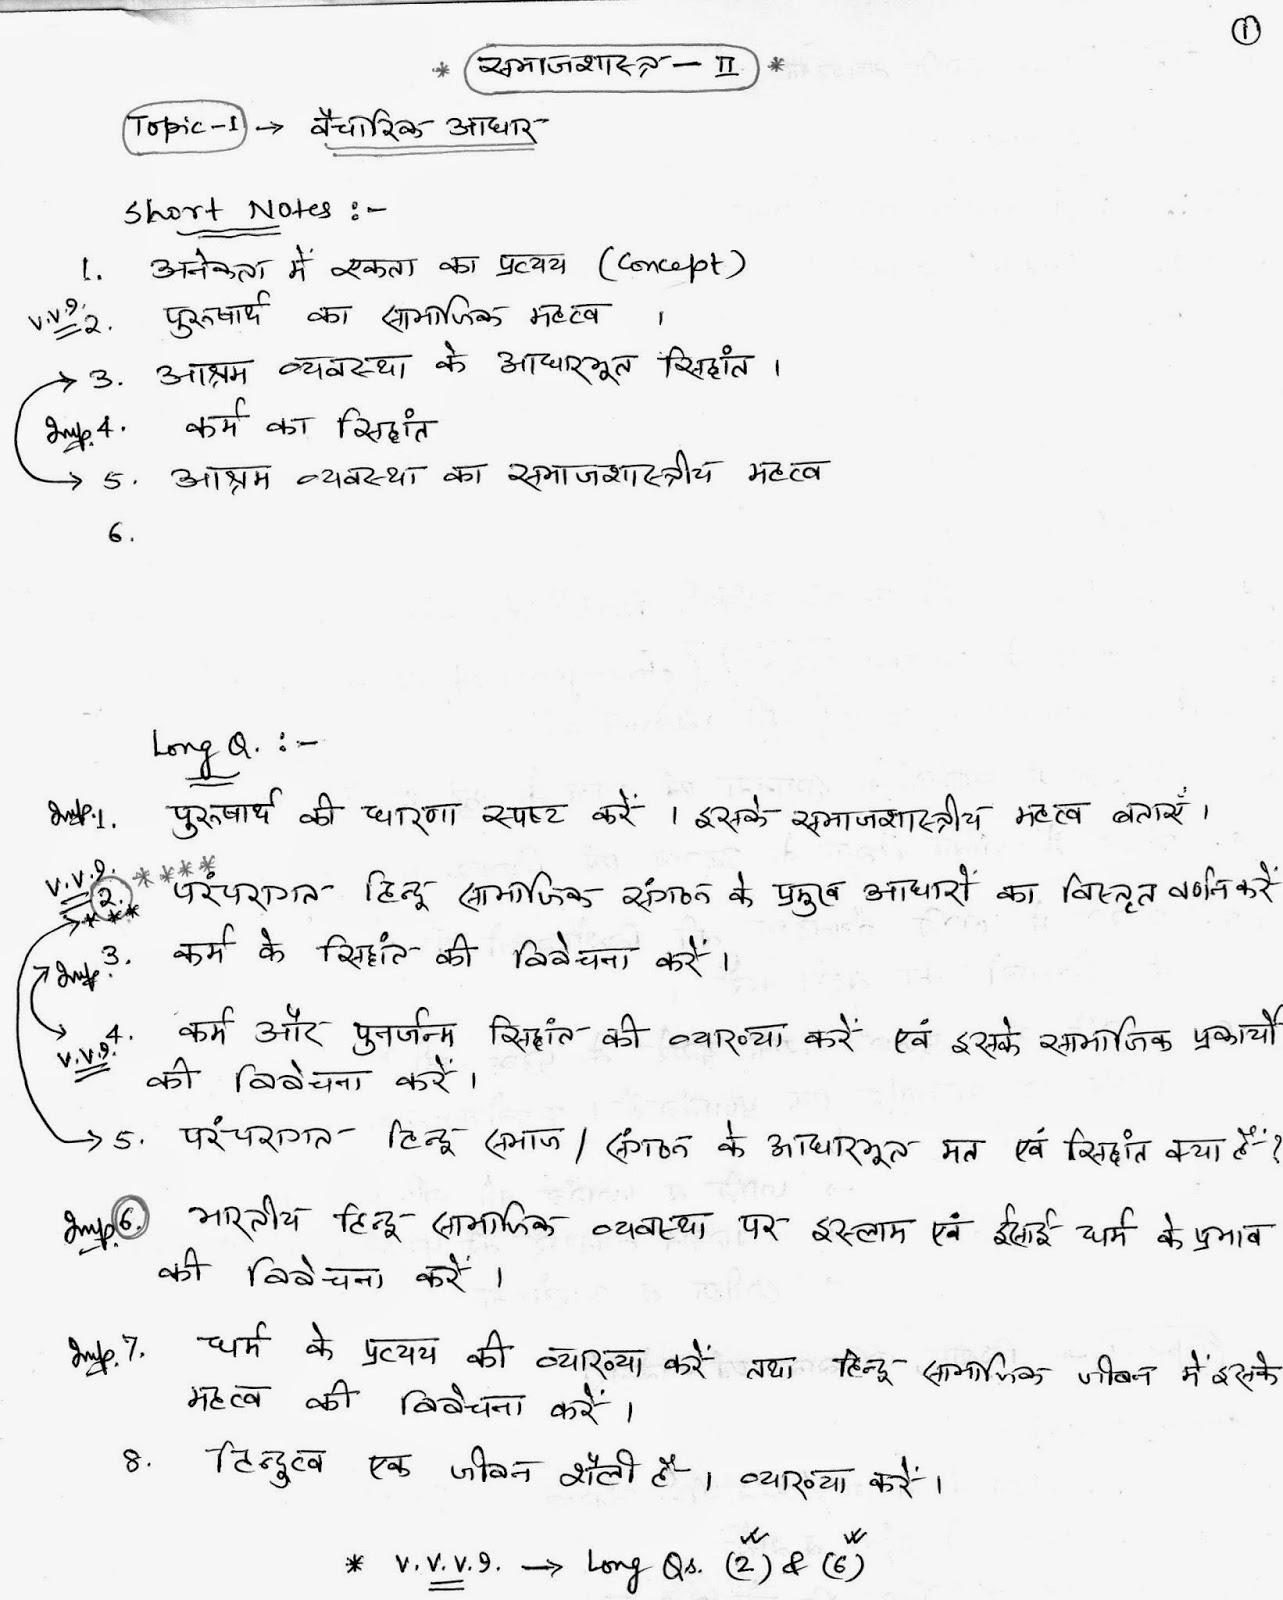 ①
* समाजशास्त्र - II *
Topic-1 → वैचारिक आधार
Short Notes :-
1. अनेकता में एकता का प्रत्यय (Concept)
V.V.I. 2. पुरुषार्थ का सामाजिक महत्व ।
→ 3. आश्रम व्यवस्था के आधारभूत सिद्धांत ।
Imp. 4. कर्म का सिद्धांत
→ 5. आश्रम व्यवस्था का समाजशास्त्रीय महत्व
6.
Long Q. :-
Imp. 1. पुरुषार्थ की धारणा स्पष्ट करें । इसके समाजशास्त्रीय महत्व बताएँ ।
V.V.I. 2. **** परंपरागत हिन्दू सामाजिक संगठन के प्रमुख आधारों का विस्तृत वर्णन करें
***
Imp. 3. कर्म के सिद्धांत की विवेचना करें ।
V.V.I. 4. कर्म और पुनर्जन्म सिद्धांत की व्याख्या करें एवं इसके सामाजिक प्रकार्यों
की विवेचना करें ।
→ 5. परंपरागत हिन्दू समाज / संगठन के आधारभूत मत एवं सिद्धांत क्या हैं ?
Imp. 6. भारतीय हिन्दू सामाजिक व्यवस्था पर इस्लाम एवं ईसाई धर्म के प्रभाव
की विवेचना करें ।
Imp. 7. धर्म के प्रत्यय की व्याख्या करें तथा हिन्दू सामाजिक जीवन में इसके
महत्व की विवेचना करें ।
8. हिन्दुत्व एक जीवन शैली है । व्याख्या करें ।
* V.V.V.I. → Long Qs. (2) & (6)